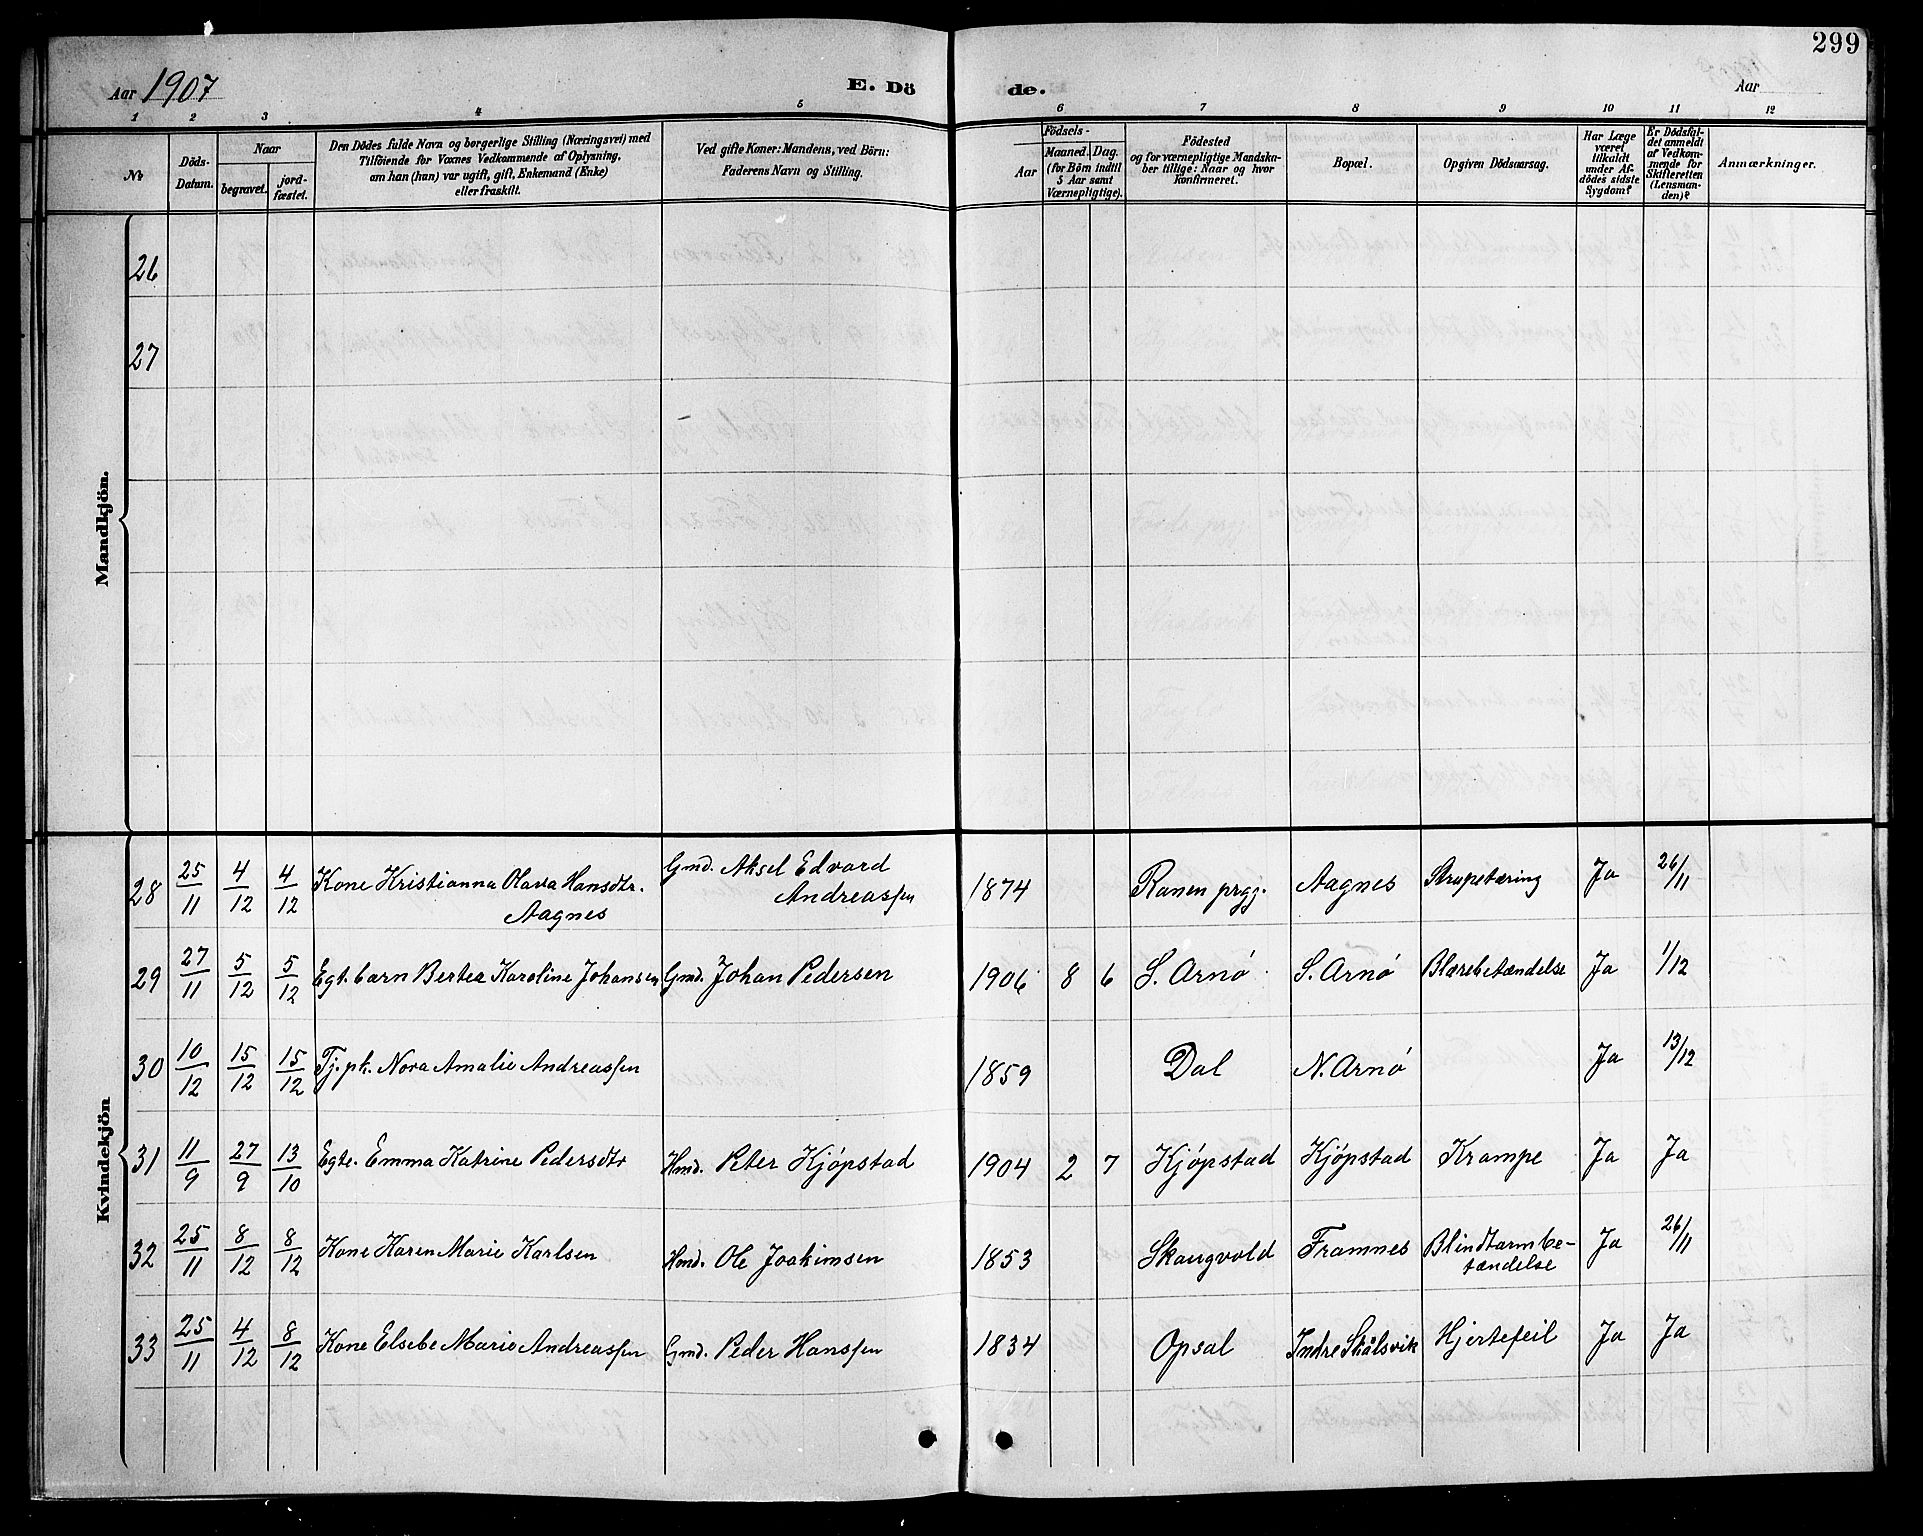 299
Aar 1907
E. Dö
de.
Aar
1 2 3 4 5 6 7 8 9 10 11 12
№
Döds-
Datum.
Naar
begravet.
jord-
fæstet.
Den Dödes fulde Navn og borgerlige Stilling (Næringsvei) med
Tilföiende for Voxnes Vedkommende af Oplysning,
om han (hun) var ugift, gift, Enkemand (Enke)
eller fraskilt.
Ved gifte Koner: Mandens, ved Börn:
Faderens Navn og Stilling.
Födsels-
Aar
Maaned. Dag.
(for Börn indtil
5 Aar samt
Værnepligtige).
Födested
og for værnepligtige Mandska-
ber tillige: Naar og hvor
Konfirmeret.
Bopæl.
Opgiven Dödsaarsag.
Har Læge
været
tilkaldt
under Af-
dödes sidste
Sygdom?
Er Dödsfal-
det anmeldt
af Vedkom-
mende for
Skifteretten
(Lensman-
den)?
Anmærkninger.
Mandkjön.
26
27
Kvindekjön
28 25/11 4/12 4/12 Kone Kristianna Olava Hansdtr. Gmd. Aksel Edvard 1874 Ranen prgj. Aagnes Strupetæring Ja 26/11
Aagnes Andreassen
29 27/11 5/12 5/12 Egt. barn Bertea Karoline Johansen Gmd. Johan Pedersen 1906 8 6 S. Arnø S. Arnø Blærebetændelse Ja 1/12
30 10/12 15/12 15/12 Tj. pk. Nora Amalie Andreassen 1859 Dal N. Arnø Ja 13/12
31 11/9 27/9 13/10 Egte. Emma Katrine Pedersdtr Hmd. Peter Kjøpstad 1904 2 7 Kjøpstad Kjøpstad Krampe Ja Ja
32 25/11 8/12 8/12 Kone Karen Marie Karlsen Hmd. Ole Joakimsen 1853 Skaugvold Framnes Blindtarmbe- Ja 26/11
tændelse
33 25/11 4/12 8/12 Kone Elsebe Marie Andreassen Gmd. Peder Hanssen 1834 Opsal Indre Skålsvik Hjertefeil Ja Ja